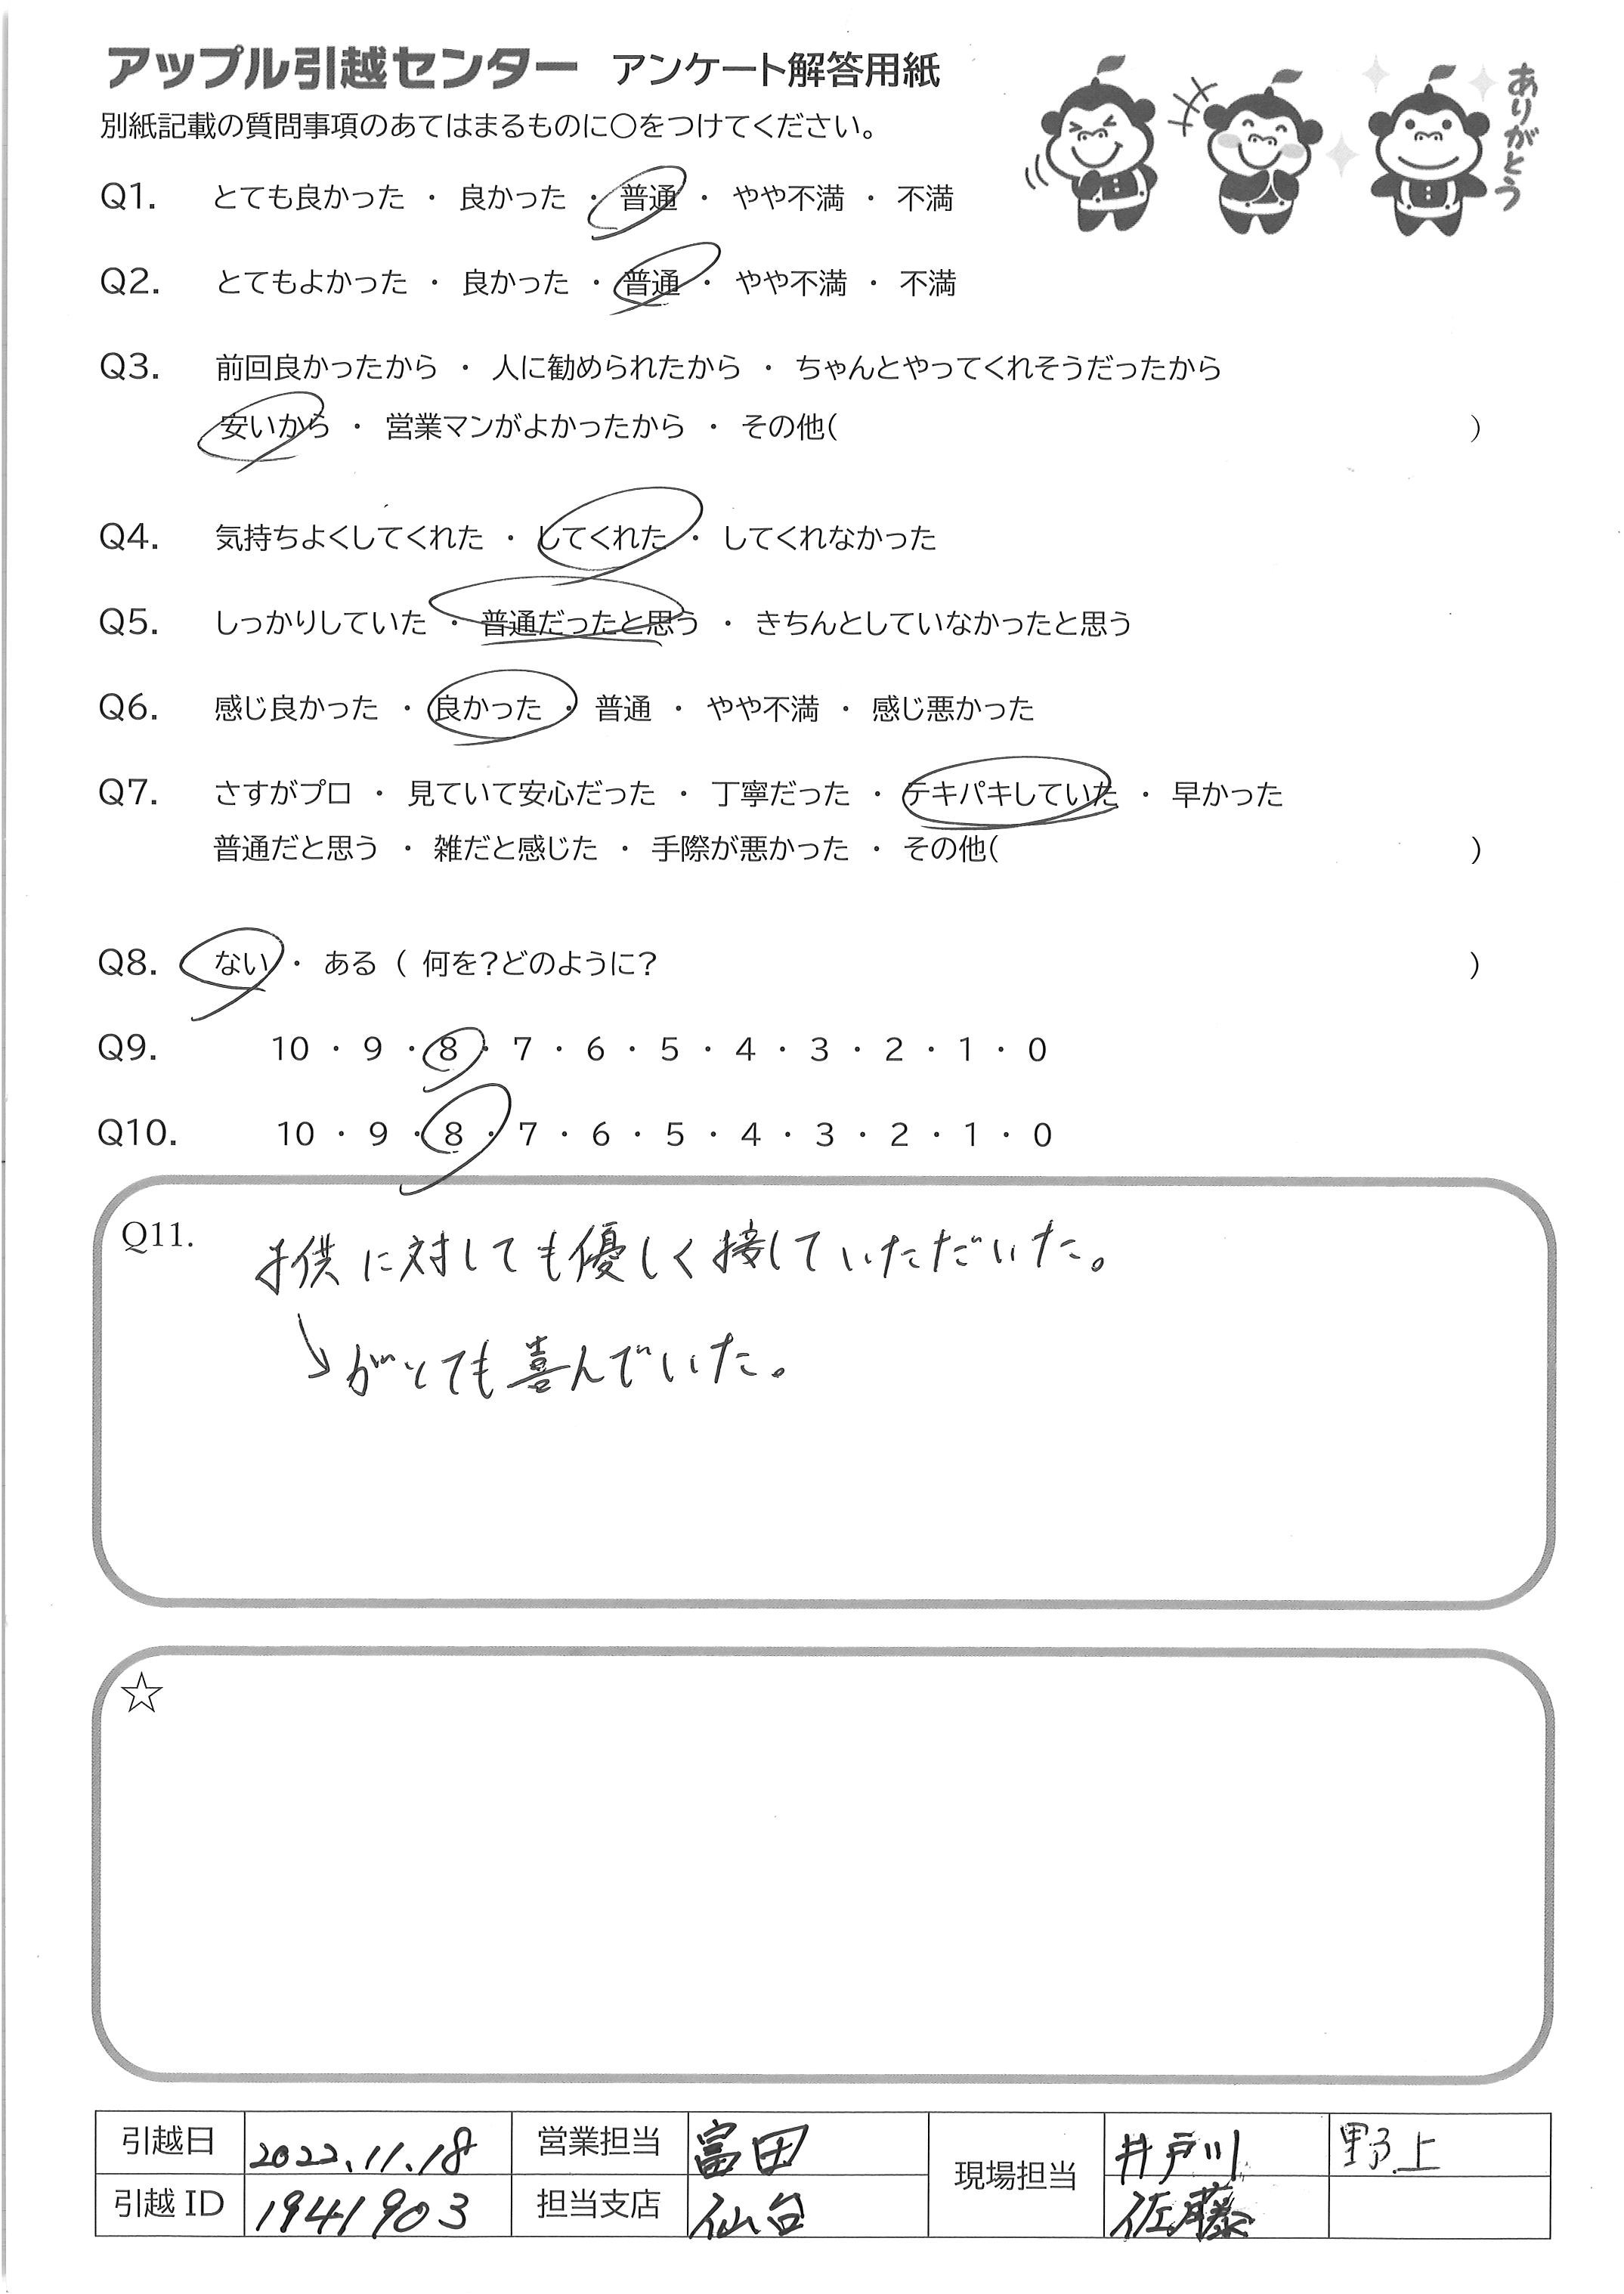 アップル引越センター アンケート解答用紙
ありがとう
別紙記載の質問事項のあてはまるものに○をつけてください。
Q1. とても良かった ・ 良かった ・ 普通 ・ やや不満 ・ 不満
Q2. とてもよかった ・ 良かった ・ 普通 ・ やや不満 ・ 不満
Q3. 前回良かったから ・ 人に勧められたから ・ ちゃんとやってくれそうだったから
安いから ・ 営業マンがよかったから ・ その他( )
Q4. 気持ちよくしてくれた ・ してくれた ・ してくれなかった
Q5. しっかりしていた ・ 普通だったと思う ・ きちんとしていなかったと思う
Q6. 感じ良かった ・ 良かった ・ 普通 ・ やや不満 ・ 感じ悪かった
Q7. さすがプロ ・ 見ていて安心だった ・ 丁寧だった ・ テキパキしていた ・ 早かった
普通だと思う ・ 雑だと感じた ・ 手際が悪かった ・ その他( )
Q8. ない ・ ある ( 何を?どのように? )
Q9. 10 ・ 9 ・ 8 ・ 7 ・ 6 ・ 5 ・ 4 ・ 3 ・ 2 ・ 1 ・ 0
Q10. 10 ・ 9 ・ 8 ・ 7 ・ 6 ・ 5 ・ 4 ・ 3 ・ 2 ・ 1 ・ 0
Q11. 子供に対しても優しく接していただいた。
↘がとても喜んでいた。
☆
引越日 2022.11.18 営業担当 富田 現場担当 井戸川 野上
引越 ID 1941903 担当支店 仙台 佐藤